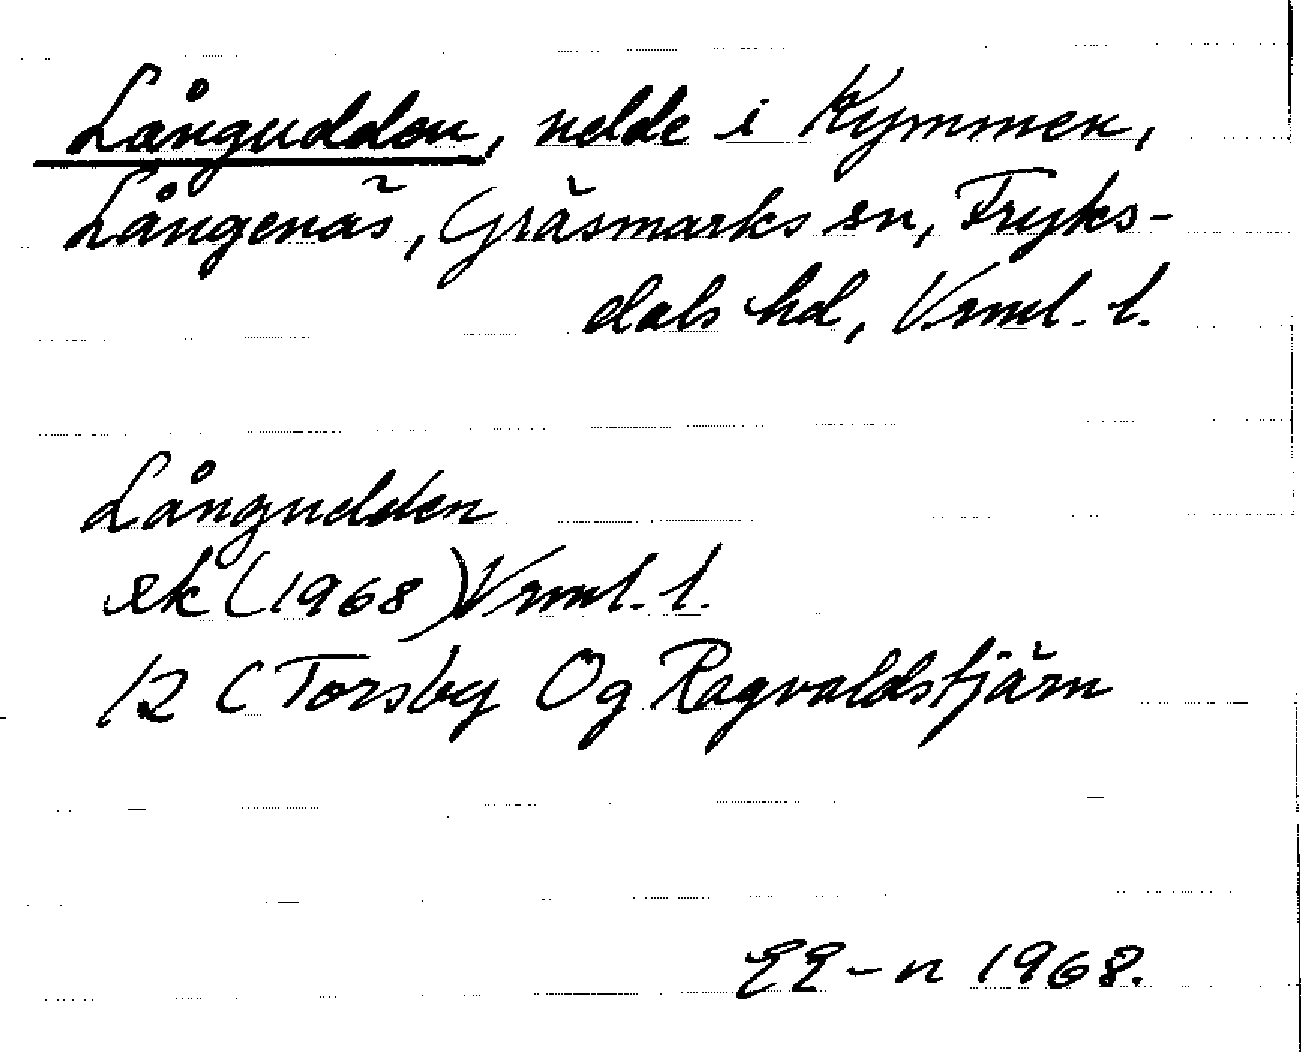 Långudden, udde i Kymmen,
Långenäs, Gräsmarks sn, Fryks-
dals hd, Vrml. l.
Långudden
ek (1968) Vrml. l.
12 C Torsby Og Ragvaldstjärn
EE-n 1968.